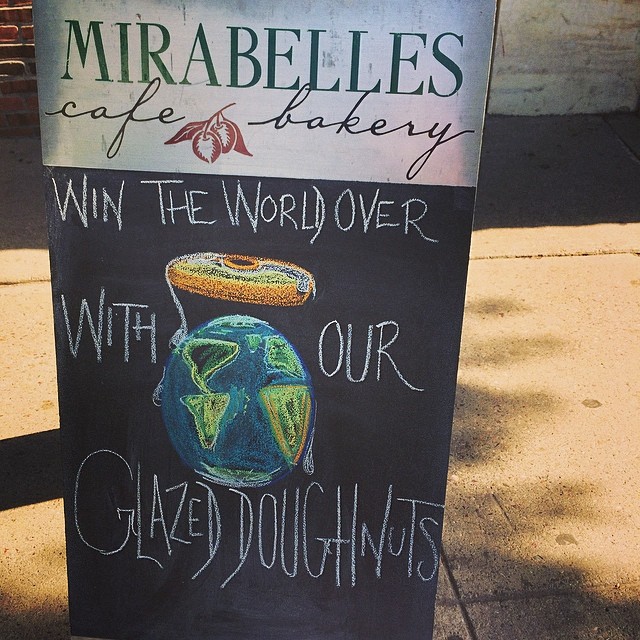 MIRABELLES
cafe bakery
WIN THE WORLD OVER
WITH OUR
GLAZED DOUGHNUTS